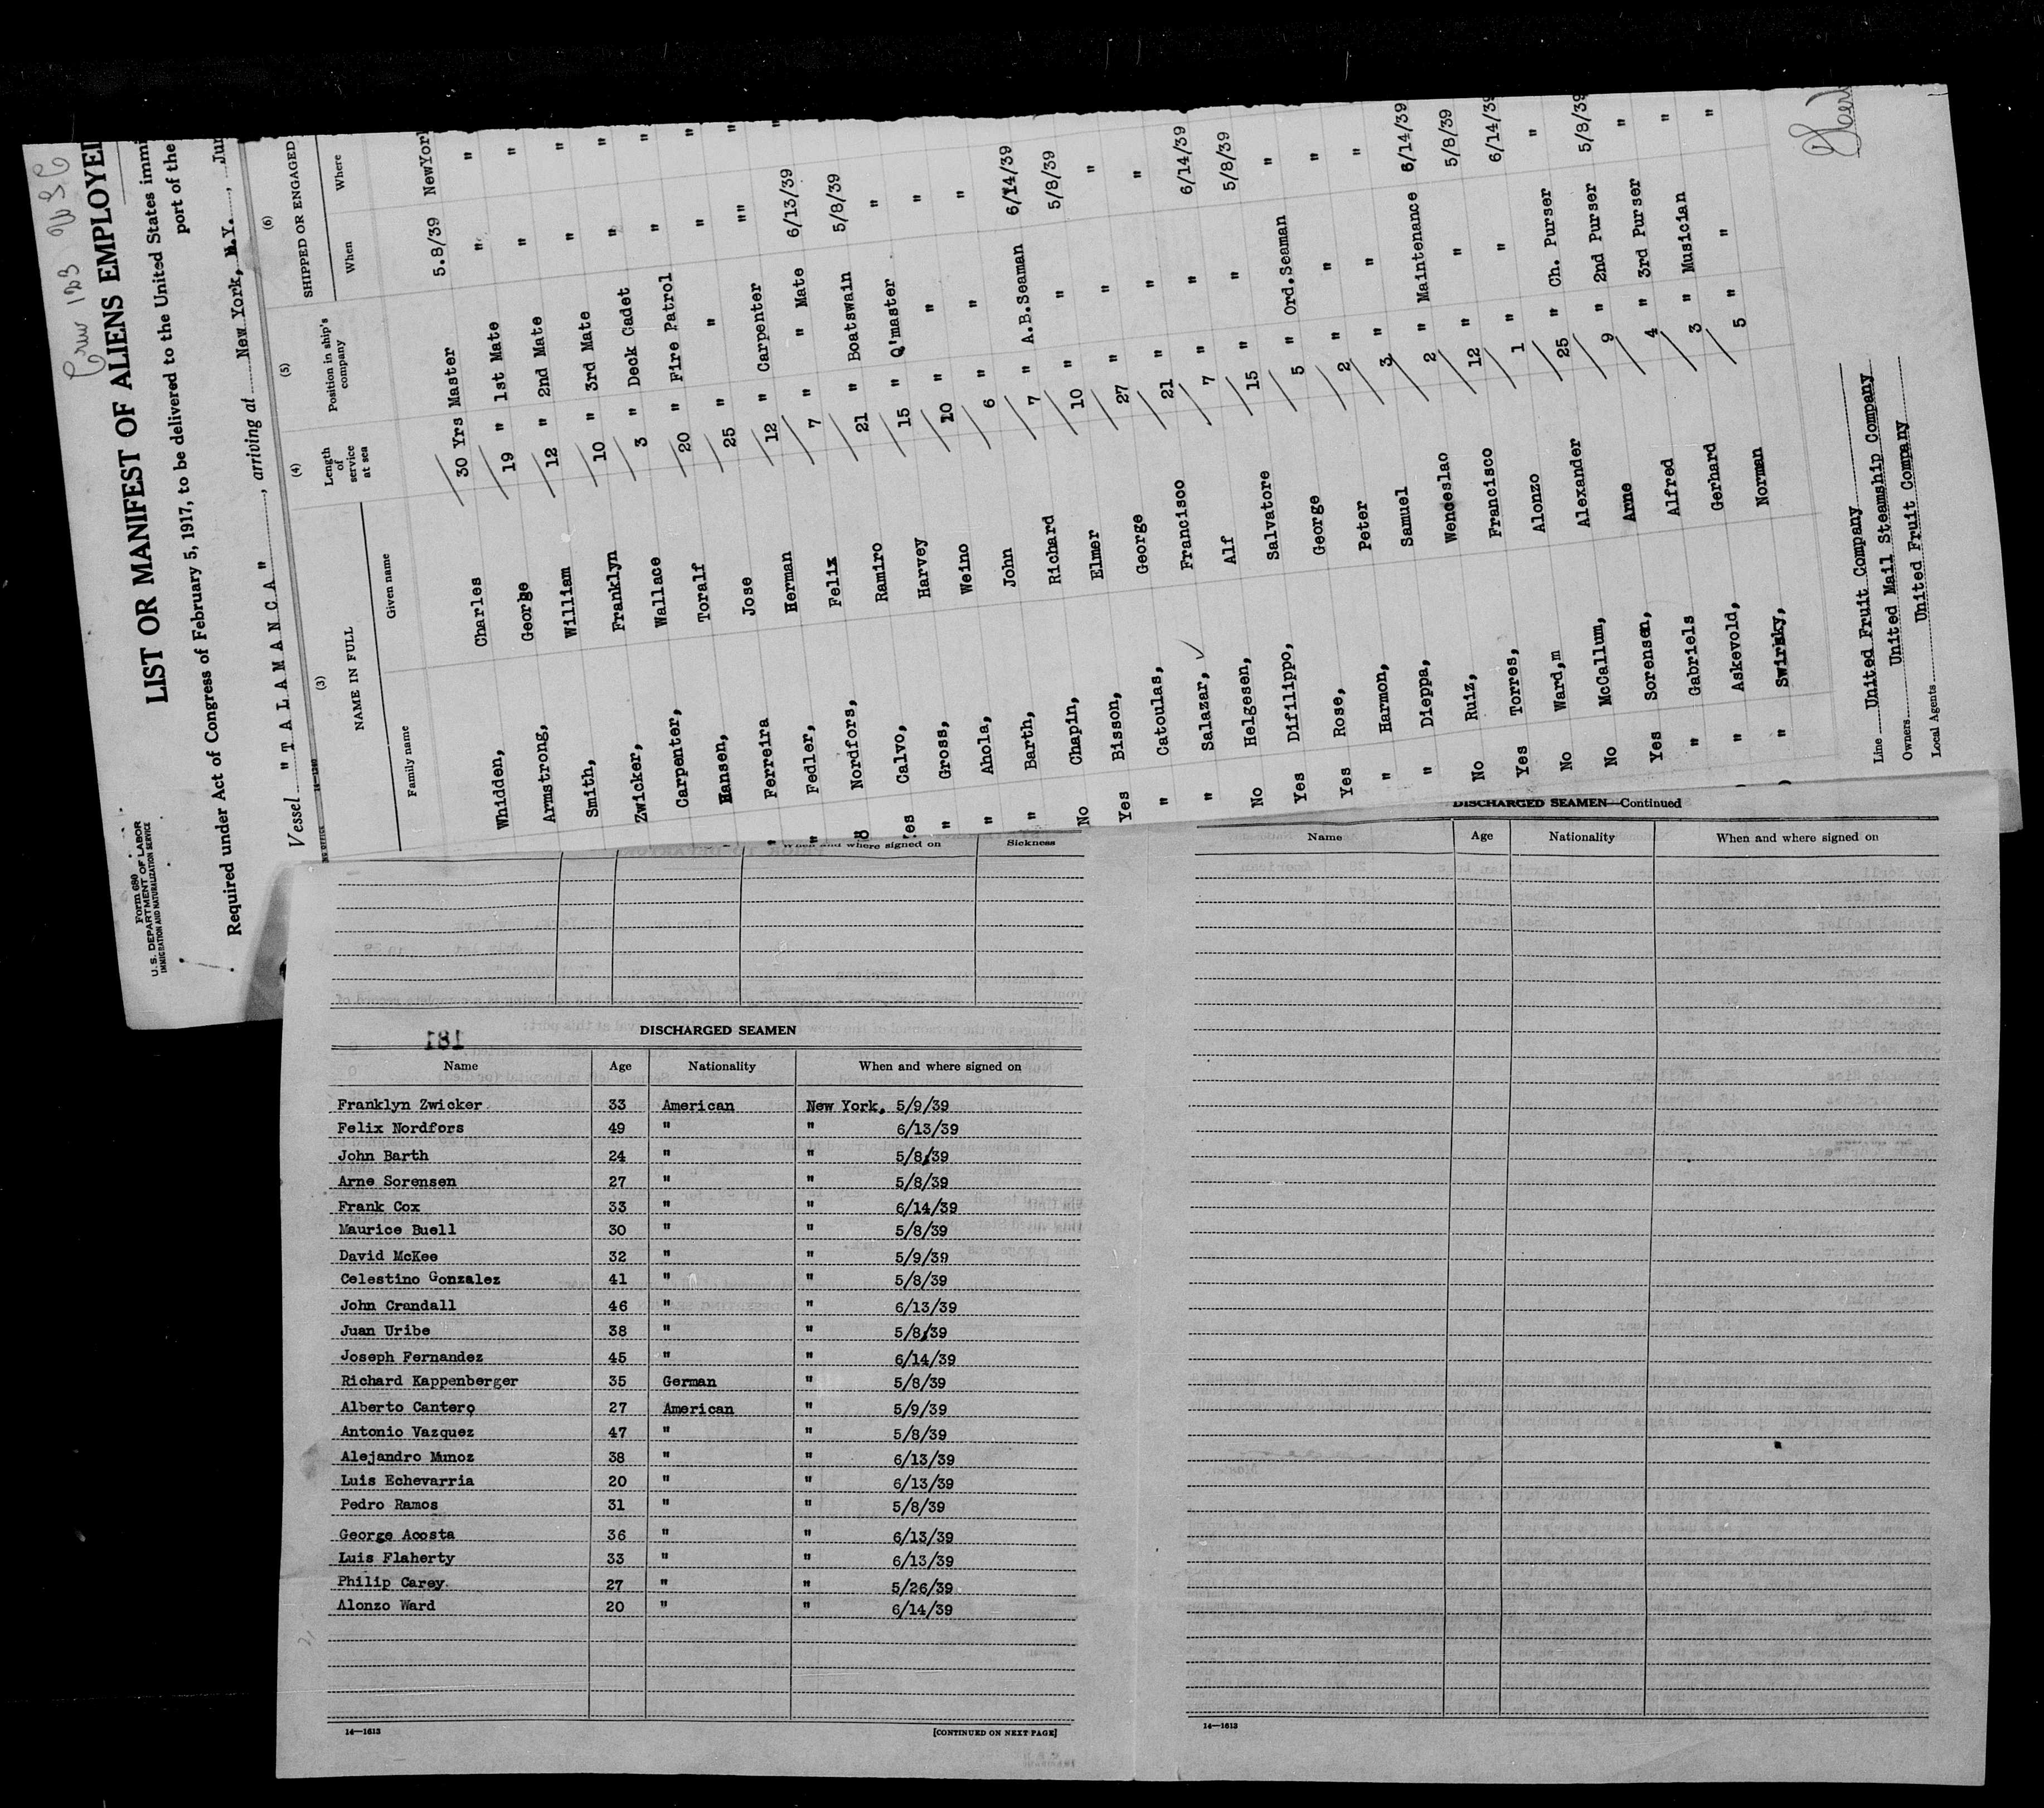 Crew 123 WSC
Form 680
U. S. DEPARTMENT OF LABOR
IMMIGRATION AND NATURALIZATION SERVICE
LIST OR MANIFEST OF ALIENS EMPLOYED
Required under Act of Congress of February 5, 1917, to be delivered to the United States immi
port of the
Vessel "TALAMANCA", arriving at New York, N.Y.,
(3) (4) (5) (6)
NAME IN FULL Length of service at sea Position in ship's company SHIPPED OR ENGAGED
Family name Given name When Where
Whidden, Charles 30 Yrs Master 5.8/39 NewYork
Armstrong, George 19 " 1st Mate " "
Smith, William 12 " 2nd Mate " "
Zwicker, Franklyn 10 " 3rd Mate " "
Carpenter, Wallace 3 " Deck Cadet " "
Hansen, Toralf 20 " Fire Patrol " "
Ferreira Jose 25 " " " "
" Fedler, Herman 12 " Carpenter "" "
" Nordfors, Felix 7 " " Mate 6/13/39 "
Calvo, Ramiro 21 " Boatswain 5/8/39
es Gross, Harvey 15 " Q'master "
" Ahola, Weino 10 " " "
" Barth, John 6 " " "
No Chapin, Richard 7 " A.B.Seaman 6/14/39
Yes Bisson, Elmer 10 " " 5/8/39
" Catoulas, George 27 " " "
" Salazar, Francisco 21 " " "
No Helgesen, Alf 7 " " 6/14/39
Yes Difilippo, Salvatore 15 " " 5/8/39
Yes Rose, George 5 " Ord.Seaman "
" Harmon, Peter 2 " " "
" Dieppa, Samuel 3 " " "
No Ruiz, Wenceslao 2 " Maintenance 6/14/39
Yes Torres, Francisco 12 " " 5/8/39
No Ward,m Alonzo 1 " " 6/14/39
No McCallum, Alexander 25 " Ch. Purser "
Yes Sorensen, Arne 9 " 2nd Purser 5/8/39
" Gabriels Alfred 4 " 3rd Purser "
" Askevold, Gerhard 3 " Musician "
" Swirsky, Norman 5 " " "
Line United Fruit Company
Owners United Mail Steamship Company
Local Agents United Fruit Company
When and where signed on Sickness
181
DISCHARGED SEAMEN
Name Age Nationality When and where signed on
Franklyn Zwicker 33 American New York, 5/9/39
Felix Nordfors 49 " " 6/13/39
John Barth 24 " " 5/8/39
Arne Sorensen 27 " " 5/8/39
Frank Cox 33 " " 6/14/39
Maurice Buell 30 " " 5/8/39
David McKee 32 " " 5/9/39
Celestino Gonzalez 41 " " 5/8/39
John Crandall 46 " " 6/13/39
Juan Uribe 38 " " 5/8/39
Joseph Fernandez 45 " " 6/14/39
Richard Kappenberger 35 German " 5/8/39
Alberto Cantero 27 American " 5/9/39
Antonio Vazquez 47 " " 5/8/39
Alejandro Munoz 38 " " 6/13/39
Luis Echevarria 20 " " 6/13/39
Pedro Ramos 31 " " 5/8/39
George Acosta 36 " " 6/13/39
Luis Flaherty 33 " " 6/13/39
Philip Carey 27 " " 5/26/39
Alonzo Ward 20 " " 6/14/39
14—1613 [CONTINUED ON NEXT PAGE]
DISCHARGED SEAMEN—Continued
Name Age Nationality When and where signed on
14—1613